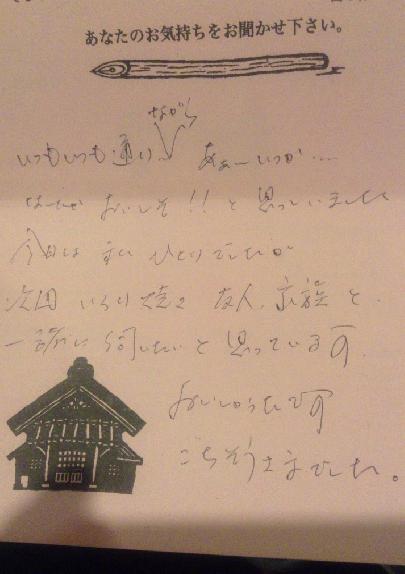 あなたのお気持ちをお聞かせ下さい。
いつもいつも通りながら あぁーいつか…
なんか おいしそ!!と思っていました
今日は ひとりでしたが
次回 いろり焼き 友人、家族と、
一諸に伺いたいと思っています
おいしかったです
ごちそうさまでした。